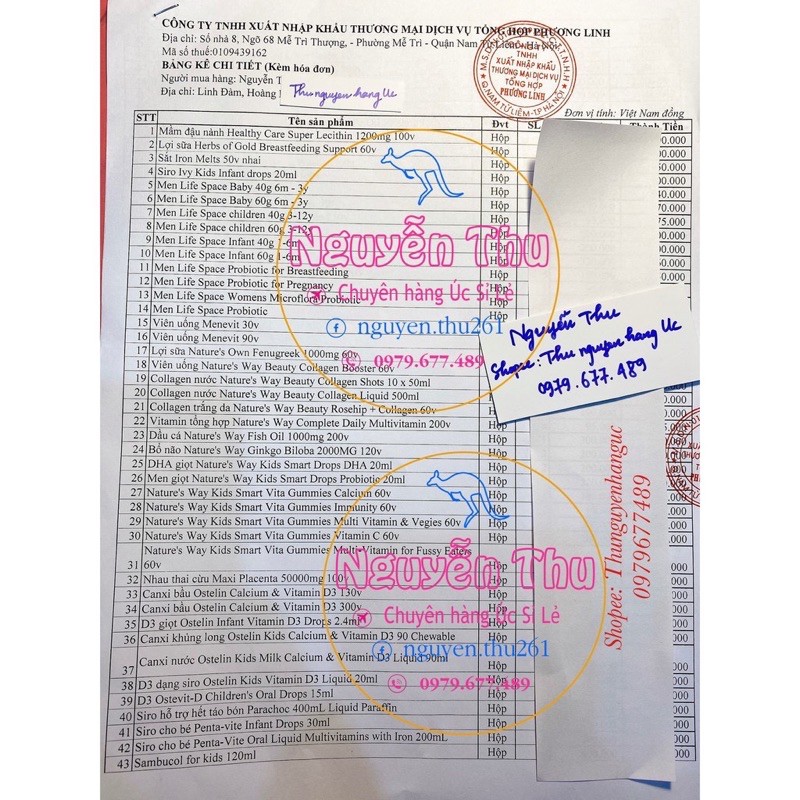 CÔNG TY TNHH XUẤT NHẬP KHẨU THƯƠNG MẠI DỊCH VỤ TỔNG HỢP PHƯƠNG LINH
Địa chỉ: Số nhà 8, Ngõ 68 Mễ Trì Thượng, - Phường Mễ Trì - Quận Nam Từ Liêm - Hà Nội
Mã số thuế:0109439162
BẢNG KÊ CHI TIẾT (Kèm hóa đơn)
Người mua hàng: Nguyễn T
Địa chỉ: Linh Đàm, Hoàng
Thu nguyen hang Uc
TNHH
XUẤT NHẬP KHẨU
THƯƠNG MẠI DỊCH VỤ
TỔNG HỢP
PHƯƠNG LINH
Q.NAM TỪ LIÊM-TP HÀ NỘI
Đơn vị tính: Việt Nam đồng
STT Tên sản phẩm Đvt SL Thành Tiền
1 Mầm đậu nành Healthy Care Super Lecithin 1200mg 100v Hộp
2 Lợi sữa Herbs of Gold Breastfeeding Support 60v Hộp
3 Sắt Iron Melts 50v nhai Hộp
4 Siro Ivy Kids Infant drops 20ml Hộp
5 Men Life Space Baby 40g 6m - 3y Hộp
6 Men Life Space Baby 60g 6m - 3y Hộp
7 Men Life Space children 40g 3-12y Hộp
8 Men Life Space children 60g 3-12y Hộp
9 Men Life Space Infant 40g 1-6m Hộp
10 Men Life Space Infant 60g 1-6m Hộp
11 Men Life Space Probiotic for Breastfeeding Hộp
12 Men Life Space Probiotic for Pregnancy Hộp
13 Men Life Space Womens Microflora Probiotic Hộp
14 Men Life Space Probiotic Hộp
15 Viên uống Menevit 30v Hộp
16 Viên uống Menevit 90v Hộp
17 Lợi sữa Nature's Own Fenugreek 1000mg 60v Hộp
18 Viên uống Nature's Way Beauty Collagen Booster 60v Hộp
19 Collagen nước Nature's Way Beauty Collagen Shots 10 x 50ml Hộp
20 Collagen nước Nature's Way Beauty Collagen Liquid 500ml Hộp
21 Collagen trắng da Nature's Way Beauty Rosehip + Collagen 60v Hộp
22 Vitamin tổng hợp Nature's Way Complete Daily Multivitamin 200v Hộp
23 Dầu cá Nature's Way Fish Oil 1000mg 200v Hộp
24 Bổ não Nature's Way Ginkgo Biloba 2000MG 120v Hộp
25 DHA giọt Nature's Way Kids Smart Drops DHA 20ml Hộp
26 Men giọt Nature's Way Kids Smart Drops Probiotic 20ml Hộp
27 Nature's Way Kids Smart Vita Gummies Calcium 60v Hộp
28 Nature's Way Kids Smart Vita Gummies Impunity 60v Hộp
29 Nature's Way Kids Smart Vita Gummies Multi Vitamin & Vegies 60v Hộp
30 Nature's Way Kids Smart Vita Gummies Vitamin C 60v Hộp
Nature's Way Kids Smart Vita Gummies Multi Vitamin for Fussy Eaters
31 60v Hộp
32 Nhau thai cừu Maxi Placenta 50000mg 100v Hộp
33 Canxi bầu Ostelin Calcium & Vitamin D3 130v Hộp
34 Canxi bầu Ostelin Calcium & Vitamin D3 300v Hộp
35 D3 giọt Ostelin Infant Vitamin D3 Drops 2.4ml Hộp
36 Canxi khủng long Ostelin Kids Calcium & Vitamin D3 90 Chewable Hộp
37 Canxi nước Ostelin Kids Milk Calcium & Vitamin D3 Liquid 90ml Hộp
38 D3 dạng siro Ostelin Kids Vitamin D3 Liquid 20ml Hộp
39 D3 Ostevit-D Children's Oral Drops 15ml Hộp
40 Siro hỗ trợ hết táo bón Parachoc 400mL Liquid Paraffin Hộp
41 Siro cho bé Penta-vite Infant Drops 30ml Hộp
42 Siro cho bé Penta-Vite Oral Liquid Multivitamins with Iron 200mL Hộp
43 Sambucol for kids 120ml Hộp
Nguyễn Thu
Chuyên hàng Úc Sỉ Lẻ
nguyen.thu261
0979.677.489
Nguyễn Thu
Shopee: Thu nguyen hang Uc
0979.677.489
Nguyễn Thu
Chuyên hàng Úc Sỉ Lẻ
nguyen.thu261
0979.677.489
Shopee: Thunguyenhanguc
0979677489